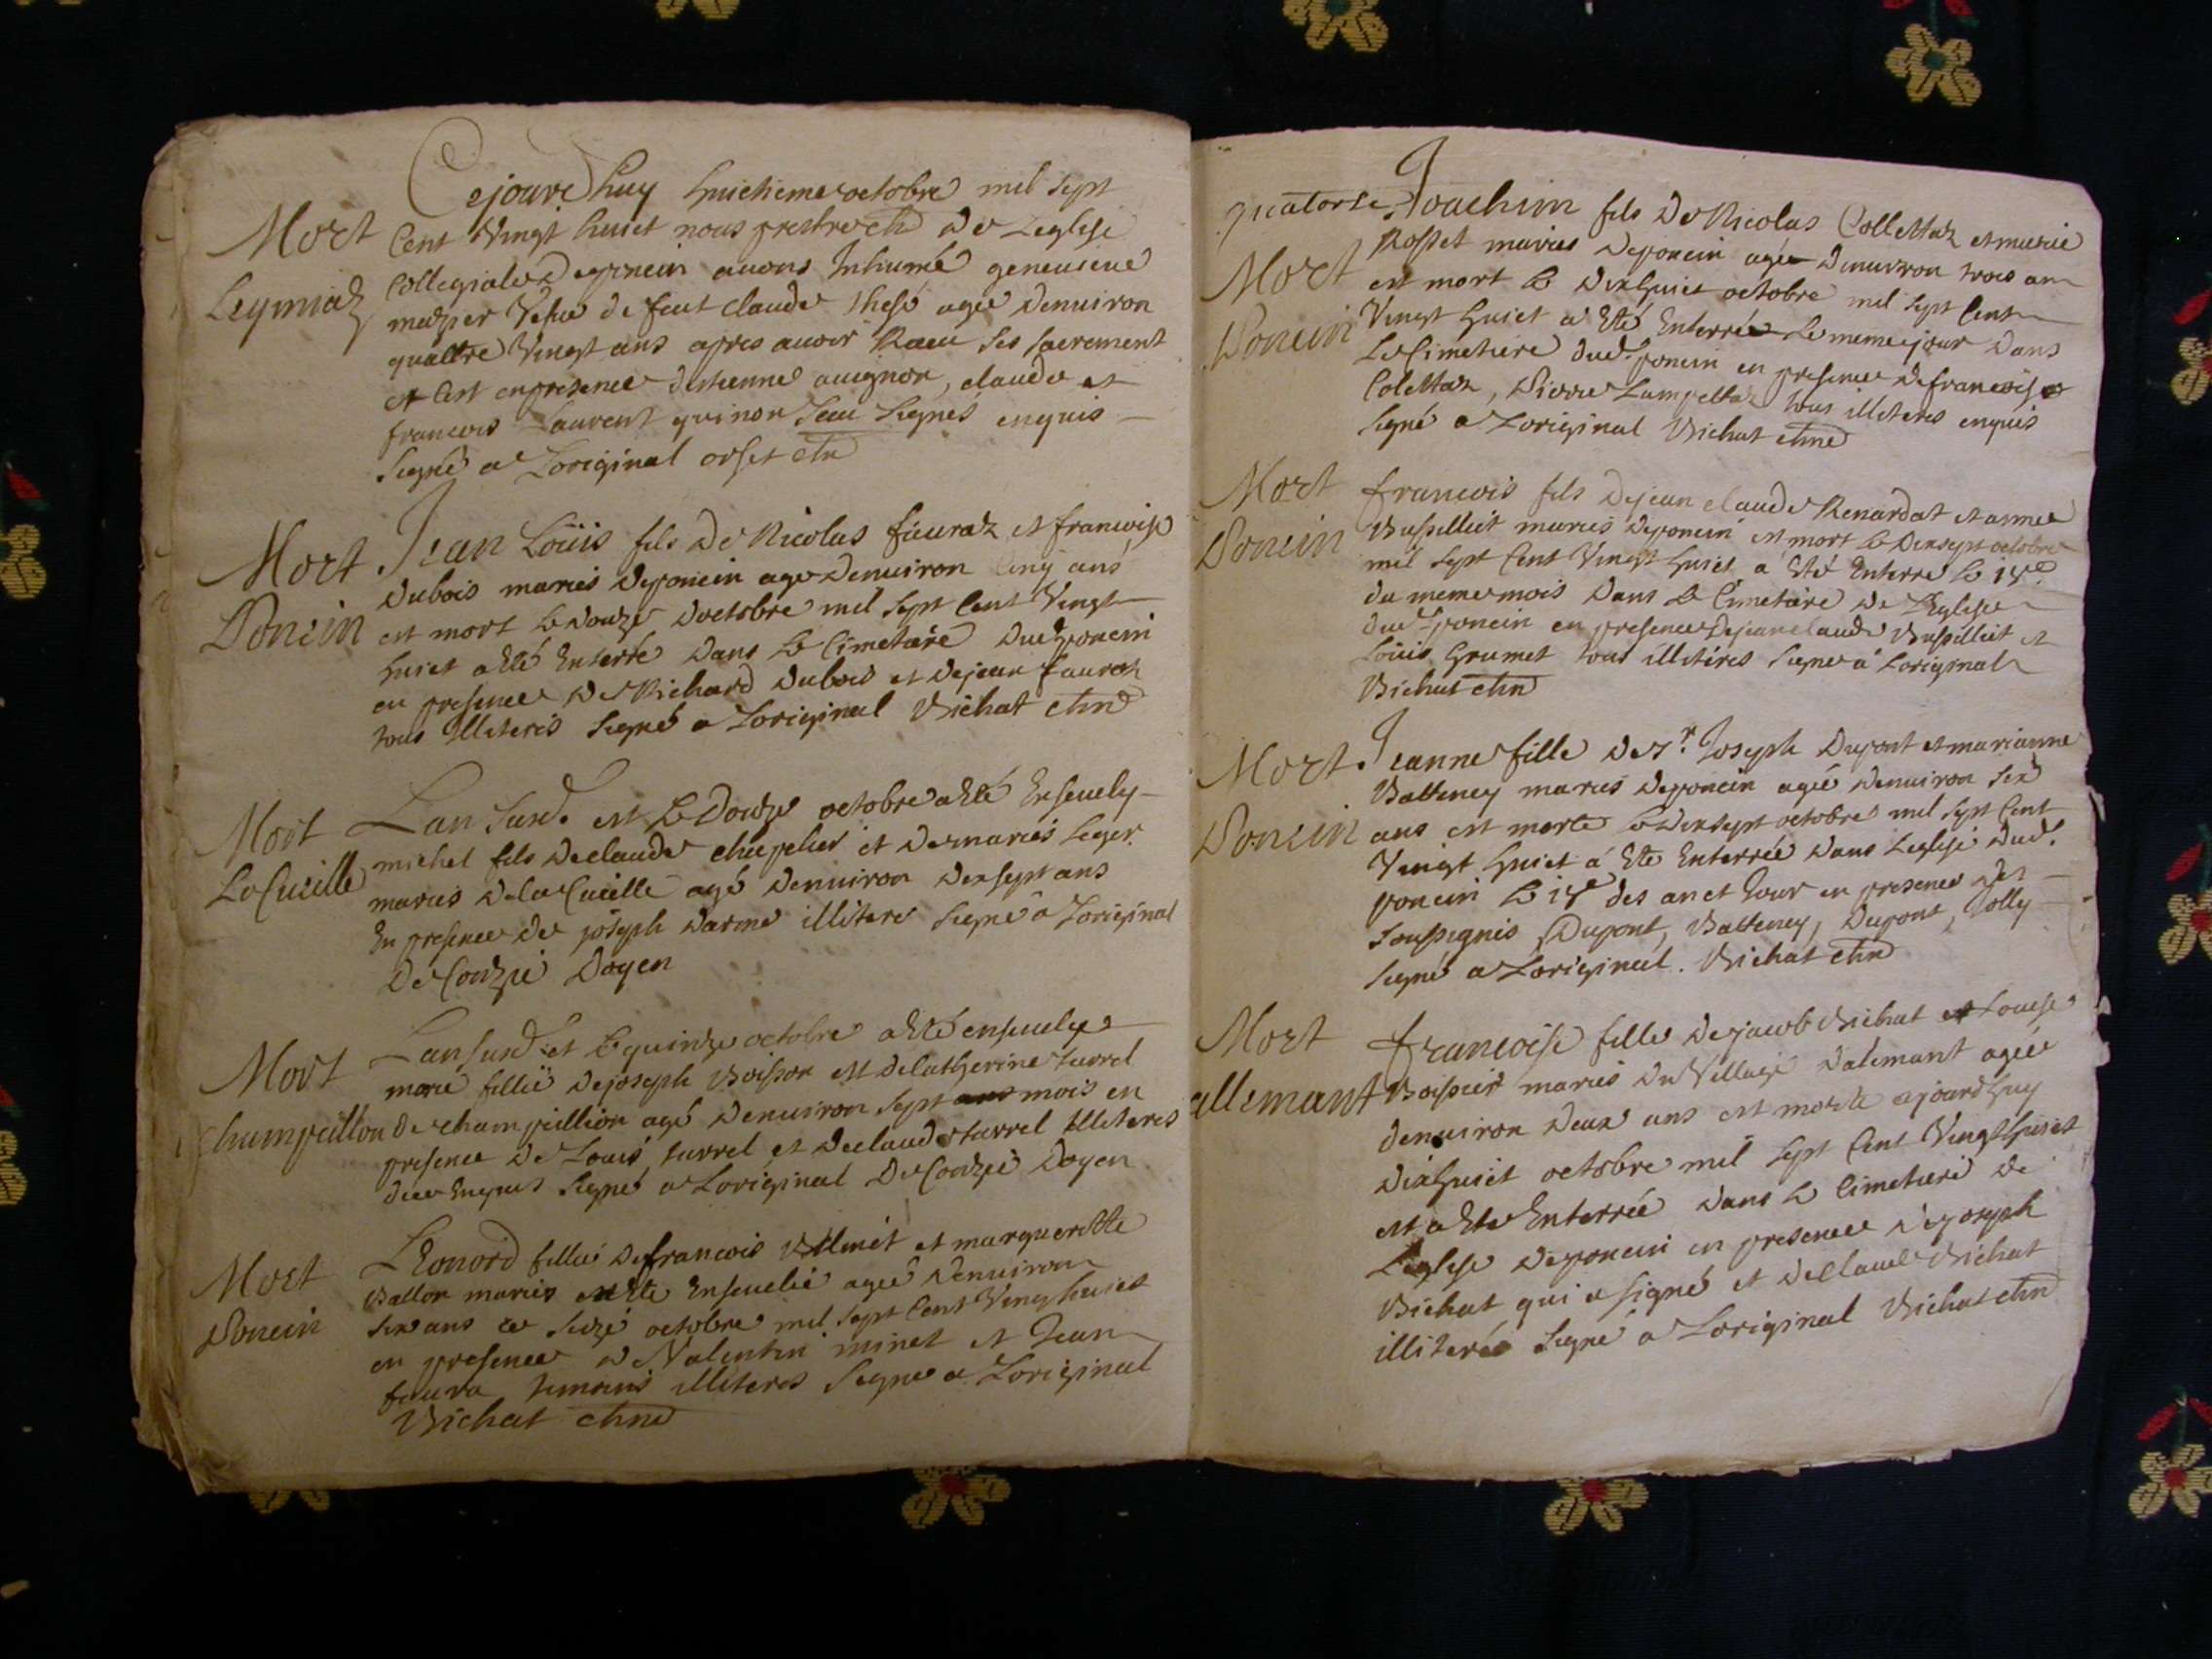 Cejourdhuy huictieme octobre mil sept
Mort Cent Vingt huict nous prestre chn de Leglise
Leymiaz Collegiale deponcin avons Inhumé genevieve
Vefue de feut Claude these agée denuiron
quattre Vingt ans apres auoir Raeu ses sacrement
et Cest en presence destienne auignon, claude et
francois Laurent qui non sceu signés enquis
Signé a Loriginal orset chn
Mort Jean Loüis fils de Nicolas fieuraz et francoise
Dubois mariés deponcin age denuiron Cinq ans
Poncin est mort le douze doctobre mil sept Cent Vingt
huict a Eté Enterré dans le Cimetaire dud poncin
en presence de Richard dubois et dejean fauraz
tous Illiterés signé a Loriginal Bichat chne
Lan susd. et le Douze octobre a Eté Enseuely
Mort michel fils declaude chapelier et de maries Leger
La Cueille mariés dela Cueille agé denuiron dixsept ans
En presence de joseph darme illitere signé a Loriginal
De Conzié Doyen
Lan susd. et le quinze octobre a Eté enseuelye
Mort marie fillie dejoseph Boisson et de Catherine turrel
Champeillon de champeillion agé denuiron sept ans mois en
presence de Louis turrel et declaude turrel Illiteres
enquis signé a Loriginal De Conzié Doyen
Leonord fillie defrancois Minet et margueritte
Mort Ballon mariés Eté Enseuelie agée denuiron
Poncin six ans ce seize octobre mil sept Cent Vingt huict
en presence de Valentin minet et Jean
faura temoins illiteres signe a Loriginal
Bichat chne
quatorse. Joachim fils de Nicolas Collettaz et marie
Rosset mariés deponcin agée denuiron trois an
Mort est mort le dixhuict octobre mil sept Cent
Poncin Vingt huict a Eté Enterrée le meme jour dans
Le Cimetiere dud. poncin en presence defrancoise
Colettaz, Pierre Lampettaz tous illiteres enquis
signé a Loriginal Bichat chne
Mort francois fils dejean claude Renardat et anne
Poncin Bussilliet mariés deponcin est mort le dixsept octobre
mil sept Cent Vingt huict a Eté Enterré le 18e
du meme mois dans le Cimetaire de Leglise
dud. poncin en presence dejean claude Bussilliet et
Loüis Grumet tous illiterés signe a Loriginal
Bichat chn
Mort. Jeanne fille de sr. Joseph Dupont et marianne
Batteney mariés deponcin agée denuiron six
Poncin ans est morte le dixsept octobre mil sept Cent
Vingt huict a Eté Enterrée dans Leglise dud.
poncin le 18e des an et Jour en presence des
soussignés Dupont, Batteney, Dupont, Jolly
signé a Loriginal. Bichat chn
Mort francoise fille dejacob Bichat et Louise
allemant Boissier mariés du Village dalemant agée
denuiron deux ans est morte ajourdhuy
dixhuict octobre mil sept Cent Vingt huict
et a Ete Enterrée dans le Cimetiere de
Leglise deponcin en presence dejoseph
Bichat qui a signé et de Claude Bichat
illiterée signé a Loriginal Bichat chn